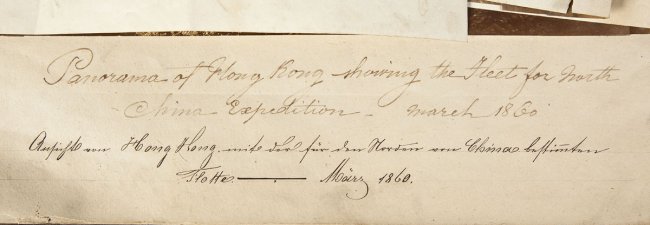 Panorama of Hong Kong showing the Fleet for North
China Expedition - march 1860
Ansicht von Hong Kong mit der für den Norden von China bestimmten
Flotte — . — März 1860.